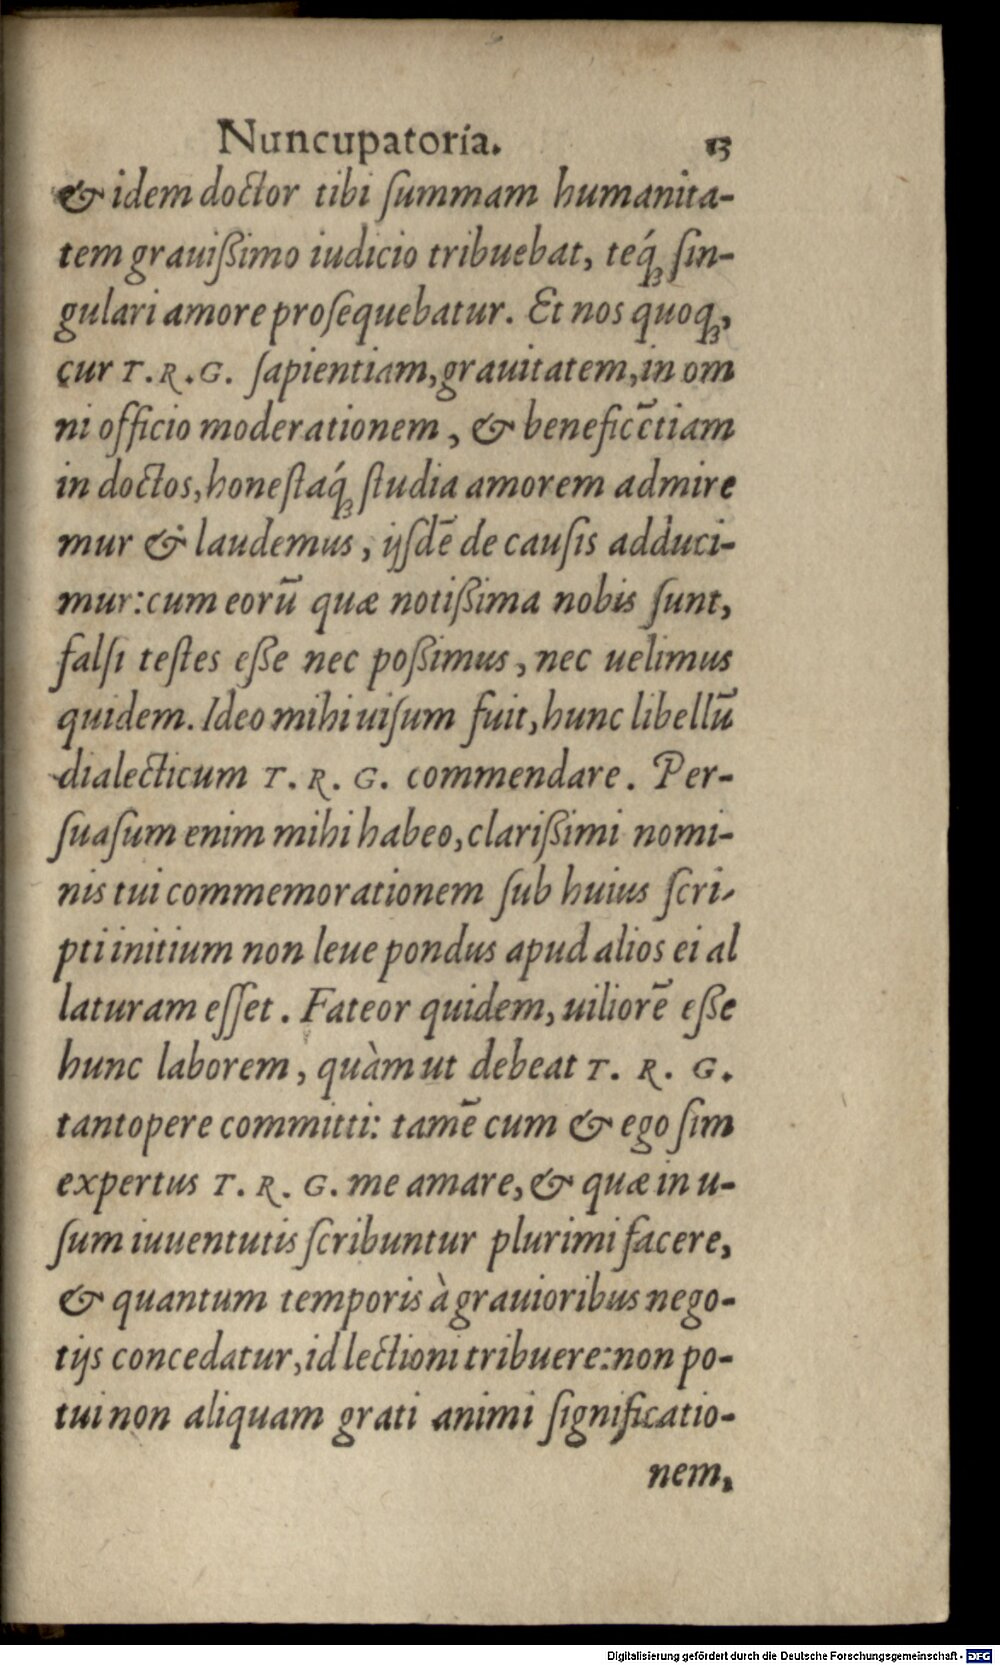 Nuncupatoria. 13
& idem doctor tibi ſummam humanita-
tem grauißimo iudicio tribuebat, teq́ꝫ ſin-
gulari amore proſequebatur. Et nos quoqꝫ,
cur T. R. G. ſapientiam, grauitatem, in om
ni officio moderationem, & beneficētiam
in doctos, honeſtaq́ꝫ ſtudia amorem admire
mur & laudemus, ijſdē de cauſis adduci-
mur: cum eorū quæ notißima nobis ſunt,
falſi teſtes eße nec poßimus, nec uelimus
quidem. Ideo mihi uiſum fuit, hunc libellū
dialecticum T. R. G. commendare. Per-
ſuaſum enim mihi habeo, clarißimi nomi-
nis tui commemorationem ſub huius ſcri-
pti initium non leue pondus apud alios ei al
laturam eſſet. Fateor quidem, uiliorē eße
hunc laborem, quàm ut debeat T. R. G.
tantopere committi: tamē cum & ego ſim
expertus T. R. G. me amare, & quæ in u-
ſum iuuentutis ſcribuntur plurimi facere,
& quantum temporis à grauioribus nego-
tijs concedatur, id lectioni tribuere: non po-
tui non aliquam grati animi ſignificatio-
nem,
Digitalisierung gefördert durch die Deutsche Forschungsgemeinschaft - DFG